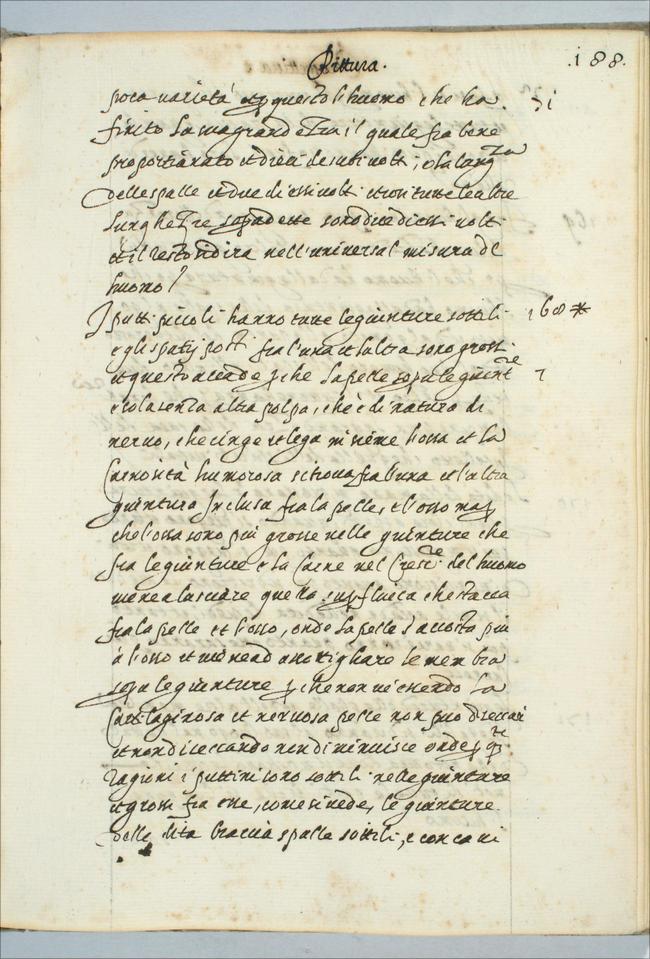 Pittura. .188.
poca varietà et questo è l'huomo che ha 71
finito la sua grandezza il quale fia bene
proportionato et dieci de suoi volti, e la largza
delle spalle et due di essi volti et cosi tutte le altre
lunghezze sopradette sono due di essi volti
et il resto si dira nell'universal misura de
huomo /
I putti piccoli hanno tutte le giunture sottili 168 *
e gli spatij posti fra l'una et l'altra sono grossi
et questo accade che la pelle sopra le giunt.re
è sola senza altra polpa, che è di natura di
nervo, che cinge et lega insieme l'ossa et la
carnosità humorosa si trova fra l'una et l'altra
giuntura Inclusa fra la pelle, et l'osso ma
che l'ossa sono più grosse nelle giunture che
fra le giunture e la Carne nel cresc.re del huomo
viene a lasciare quella superfluità che stava
fra la pelle et l'osso, onde la pelle s'accosta più
à l'osso et viene ad assottigliare le membra
sopra le giunture che non vi essendo la
Cartilaginosa et nervosa pelle non può diseccar
et non diseccando non diminuisce onde q.te
ragioni i puttini sono sottili nelle giunture
et grossi fra esse, come si vede, le giunture
delle dita braccia spalle sottili, e concavi